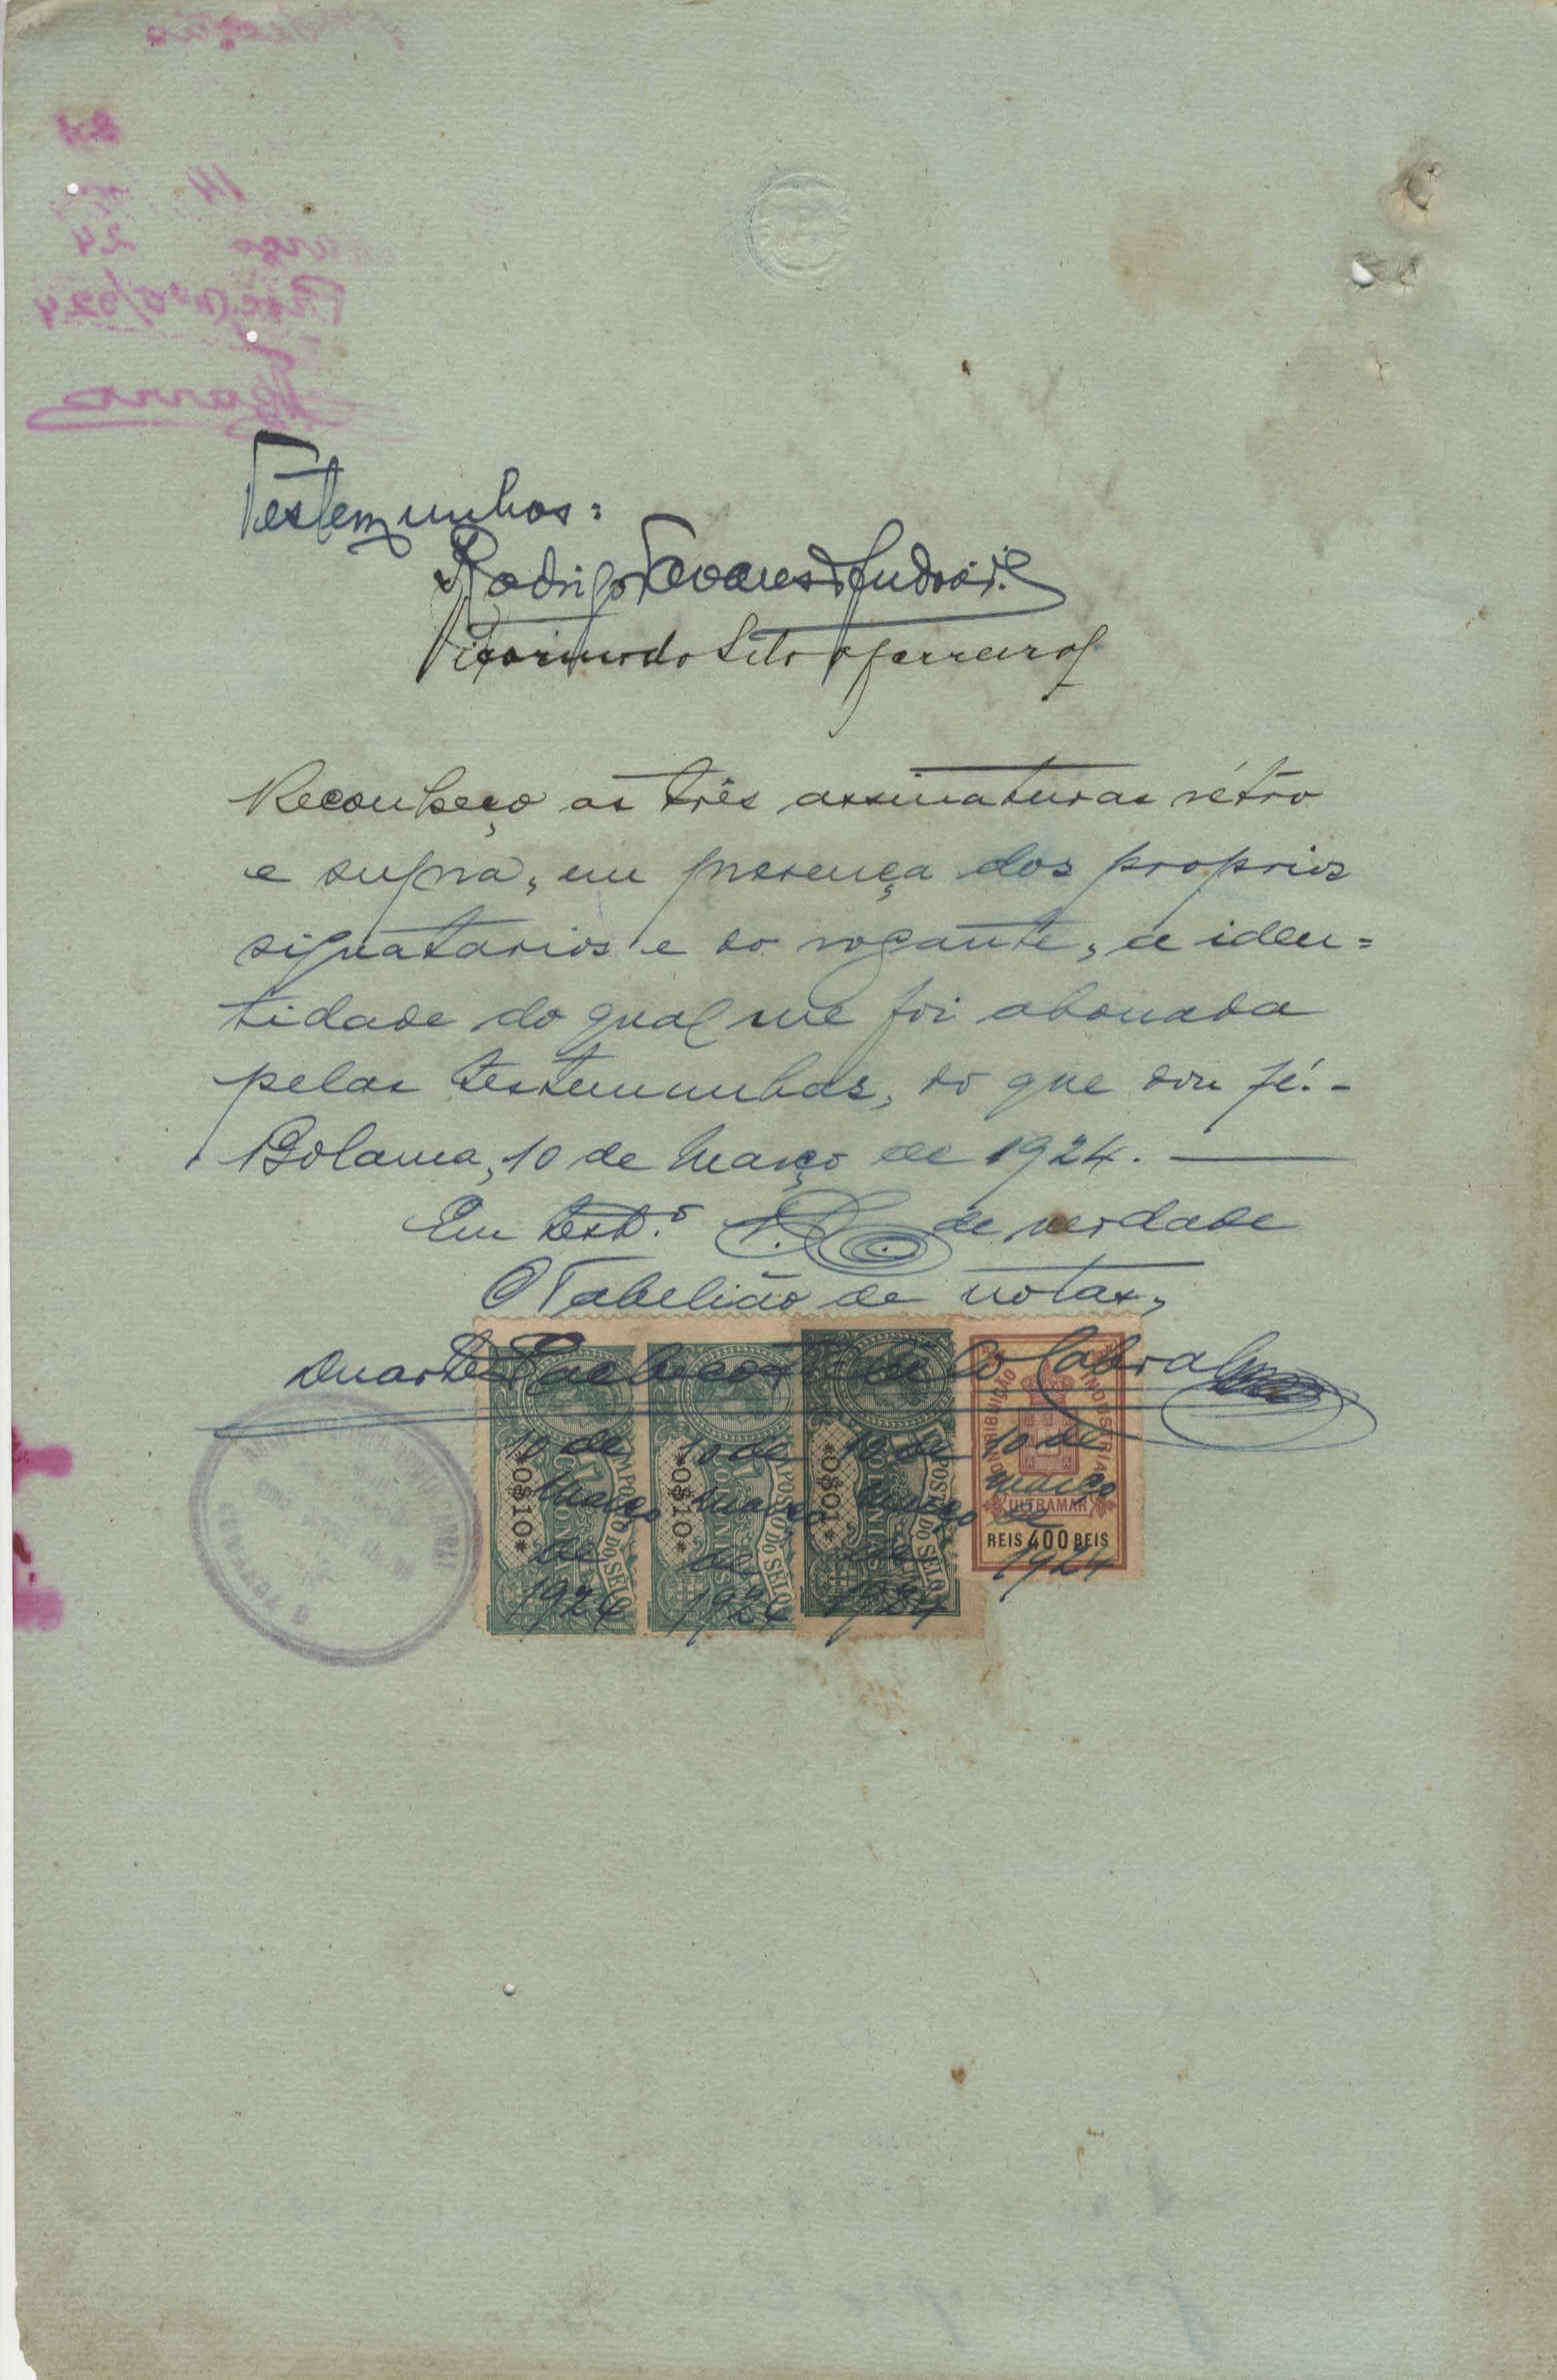 Testemunhas:
Rodrigo Tavares d'Andrade
Ferreira
Reconheço as três assinaturas rétro
e supra, em presença dos proprios
signatarios e do rogante, a iden=
tidade do qual me foi abonada
pelas testemunhas, do que dou fé.-
Bolama, 10 de Março de 1924.
Em test.º de verdade
O Tabelião de notas,
Duarte Pacheco Cabral
CONTRIBUIÇÃO INDUSTRIAL
10 de Março de 1924
10 de Março de 1924
10 de Março de 1924
10 de Março de 1924
*0$10*
*0$10*
*0$01*
IMPOSTO DO SELO
COLONIAS
IMPOSTO DO SELO
COLONIAS
IMPOSTO DO SELO
COLONIAS
ULTRAMAR
REIS 400 REIS